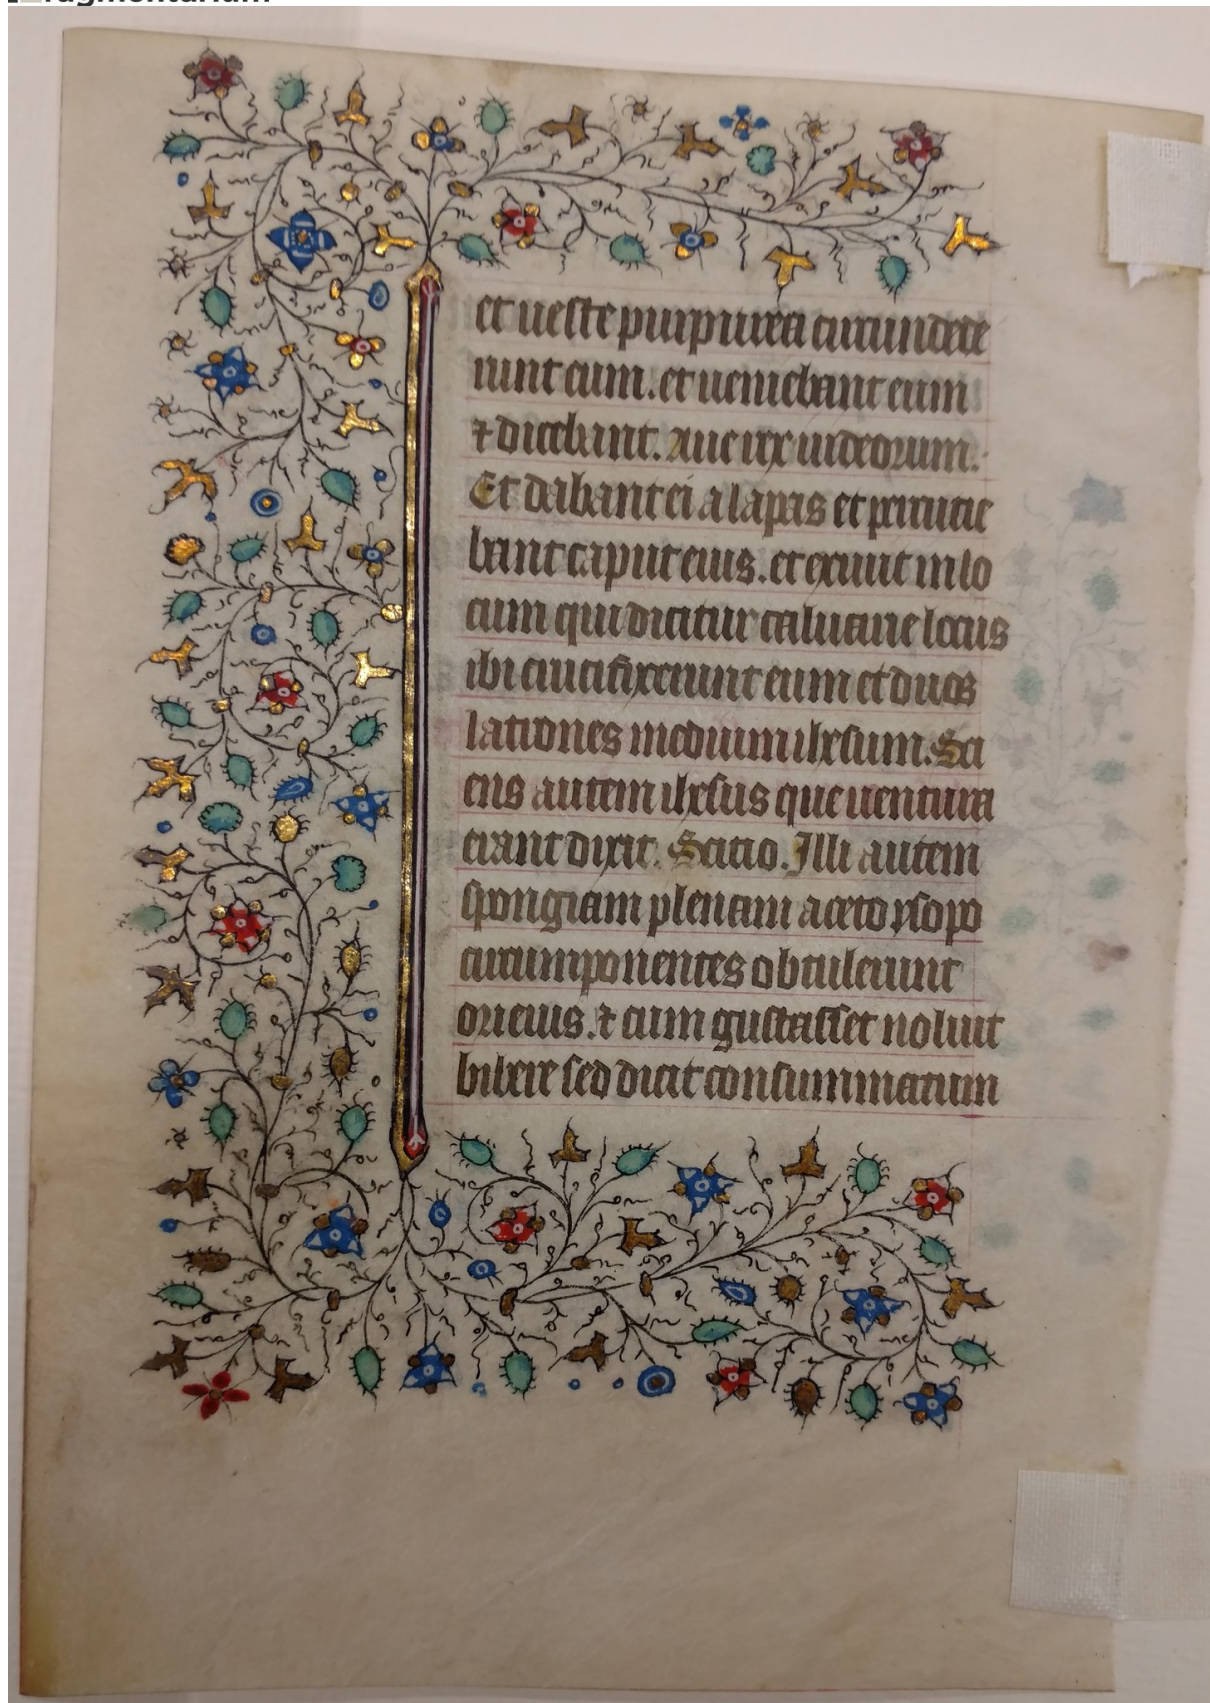 fragmentarium
et ueste purpurea circumdede
runt eum. et ueniebant eum
⁊ dicebant. Aue rex iudeorum.
Et dabant ei alapas et percucie
bant caput eius. et exiuit in lo
cum qui dicitur caluarie locus
ibi crucifixerunt eum et duos
latrones medium ihesum. Sci
ens autem ihesus que uentura
erant dixit. Scitio. Illi autem
spongiam plenam aceto ysopo
circumponentes obtulerunt
ori eius. ⁊ cum gustasset noluit
bibere sed dicit consummatum